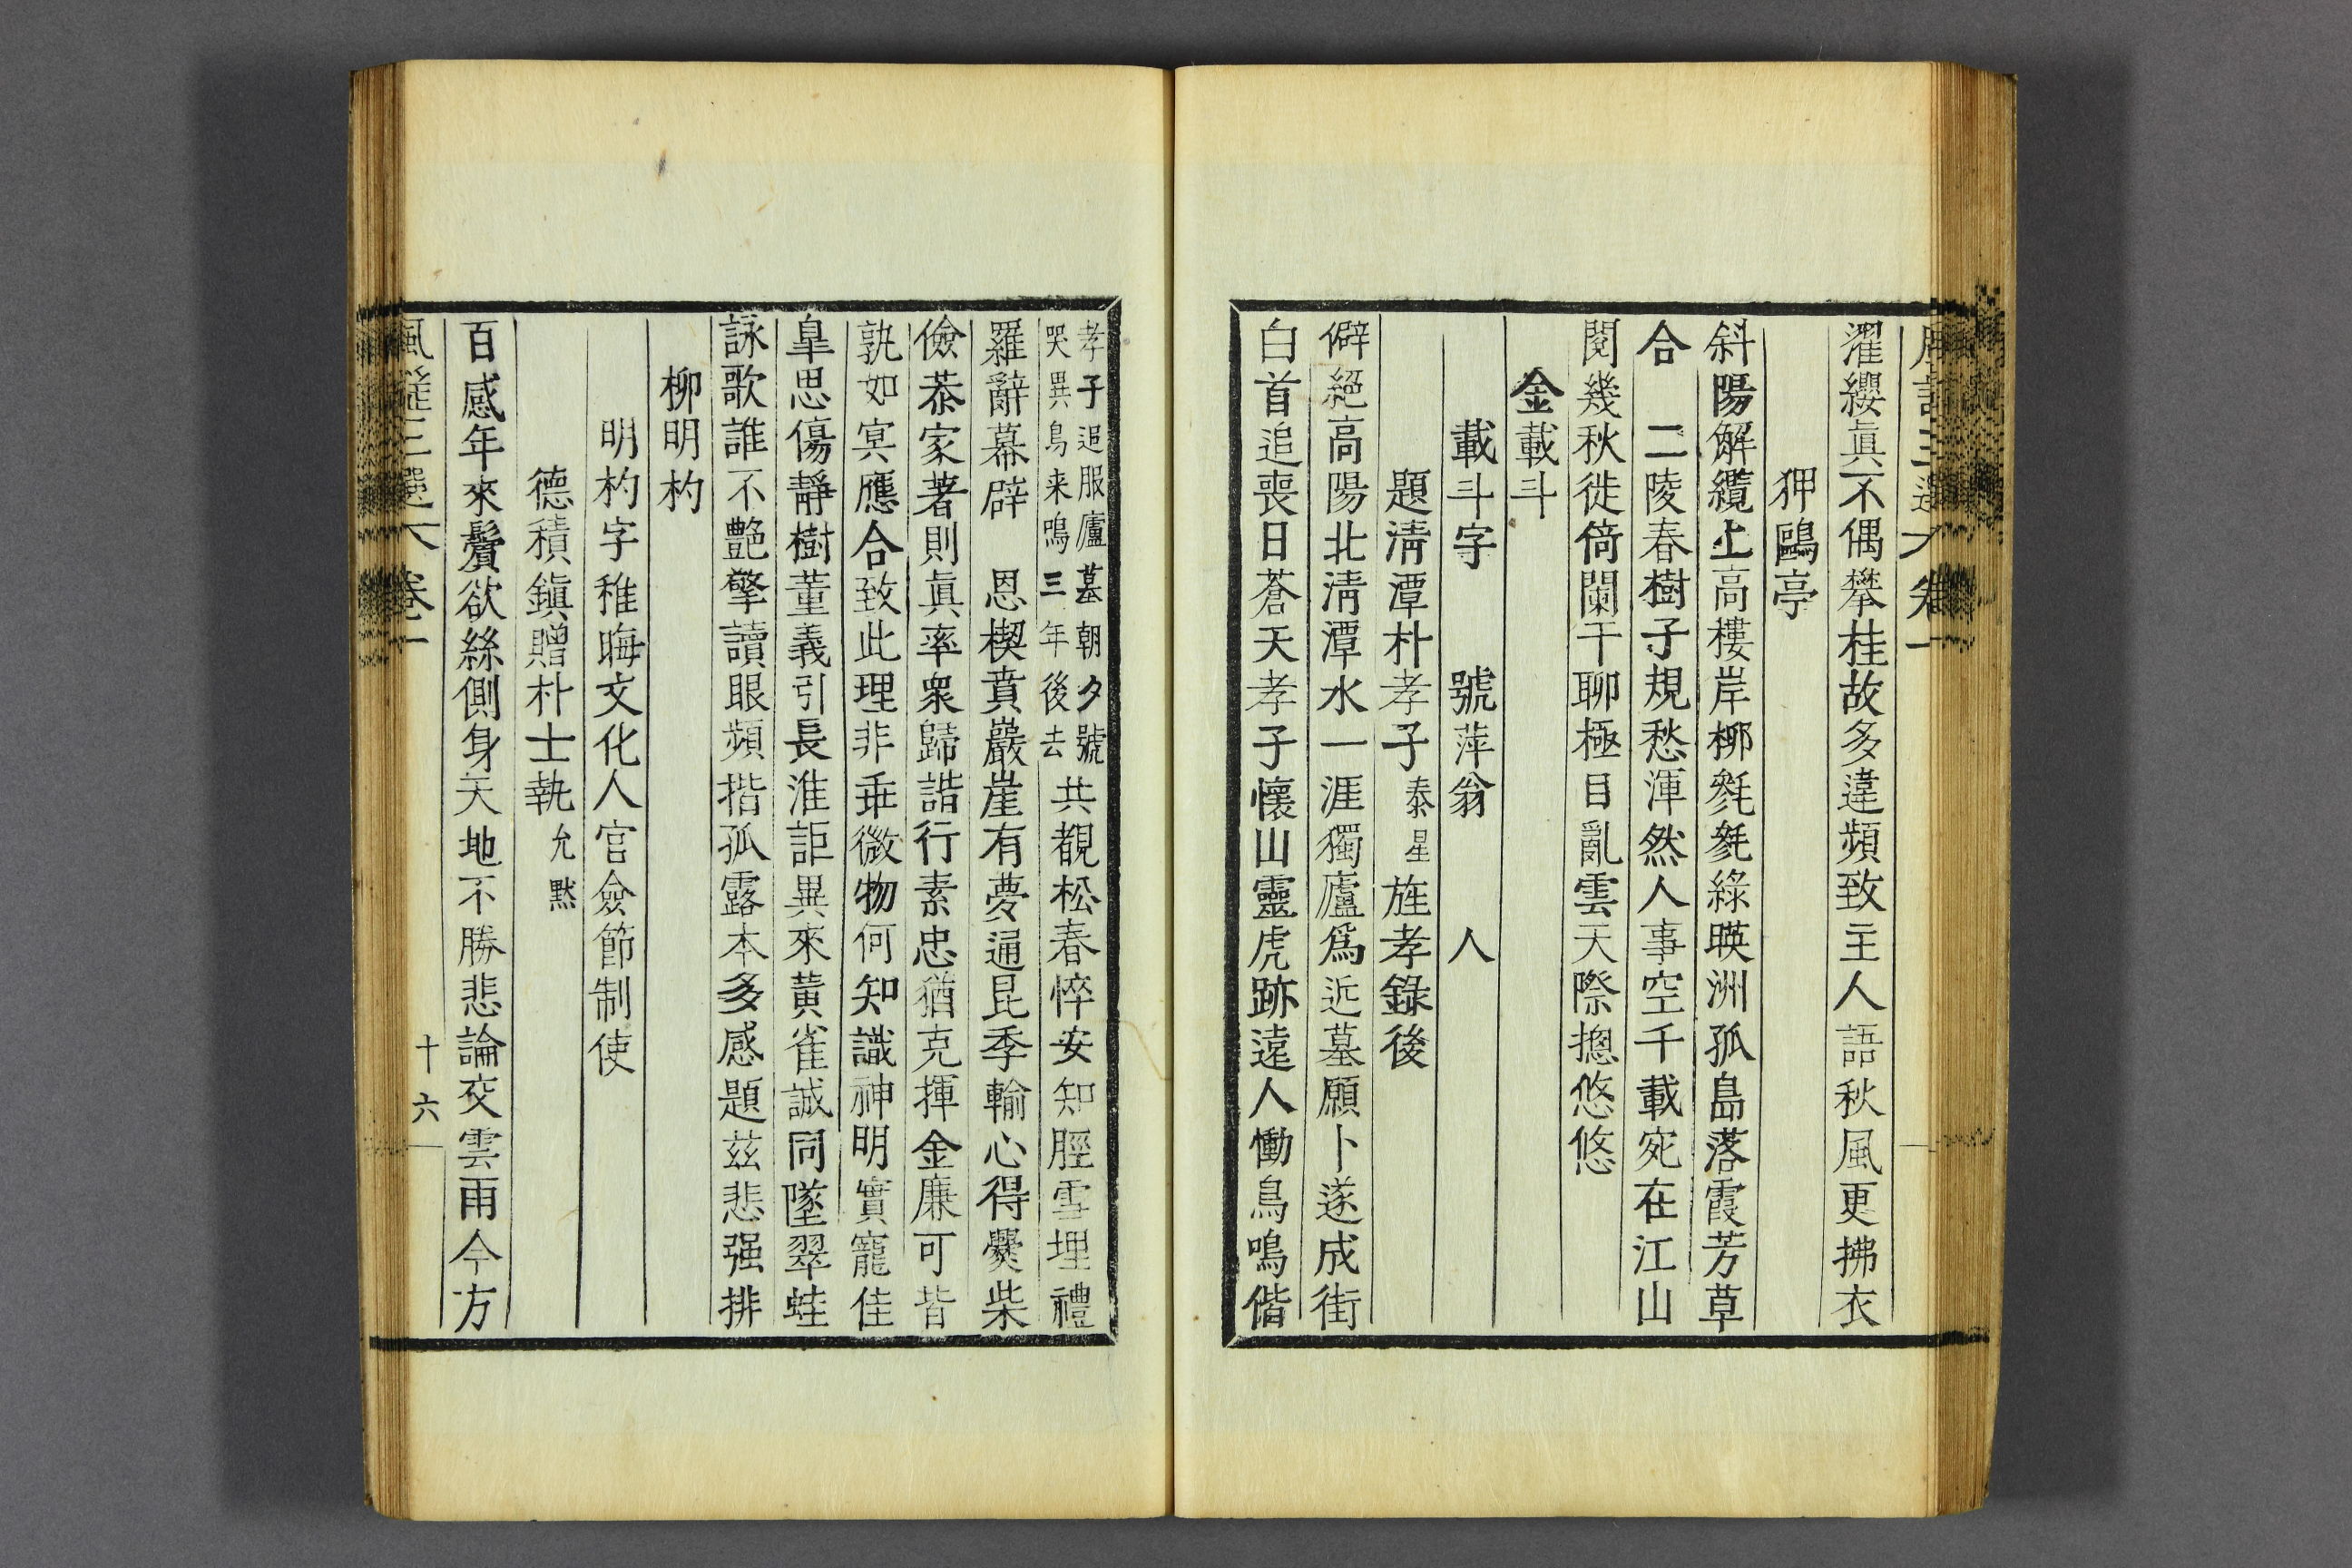 風謠三選 卷一
濯纓眞不偶攀桂故多違頻致主人語秋風更拂衣
狎鷗亭
斜陽解纜上高樓岸柳毿毿綠暎洲孤島落霞芳草
合 二陵春樹子規愁渾然人事空千載宛在江山
閱幾秋徙倚闌干聊極目亂雲天際摠悠悠
金載斗
載斗字 號萍翁 人
題淸潭朴孝子泰星旌孝錄後
僻絕高陽北淸潭水一涯獨廬爲近墓願卜遂成街
白首追喪日蒼天孝子懷山靈虎跡遠人慟鳥鳴偕
孝子追服廬墓朝夕號
哭異鳥来鳴三年後去 共覩松春悴安知脛雪埋禮
羅辭幕辟 恩楔賁巖崖有夢通昆季輸心得爨柴
儉恭家著則眞率衆歸諧行素忠猶克揮金廉可皆
孰如冥應合致此理非乖微物何知識神明實寵佳
臯思傷靜樹董義引長淮詎異來黃雀誠同墜翠蛙
詠歌誰不艶擎讀眼頻揩孤露本多感題茲悲强排
柳明杓
明杓字稚晦文化人官僉節制使
德積鎭贈朴士執允默
百感年來鬢欲絲側身天地不勝悲論交雲雨今方
風謠三選 卷一 十六